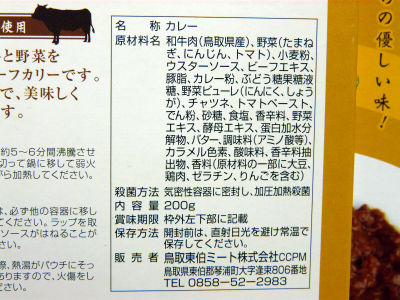 使用
と野菜を
ーフカリーです。
で、美味しく
す。
約5〜6分間沸騰させ
切って鍋に移し弱火
がら加熱してください。
は、必ず他の容器に移し
てください。ラップを取
ソースがはねることが
い。
際、熱湯がパウチにそっ
ありますので、火傷をし
さい。
名 称 カレー
原材料名 和牛肉(鳥取県産)、野菜(たまね
ぎ、にんじん、トマト)、小麦粉、
ウスターソース、ビーフエキス、
豚脂、カレー粉、ぶどう糖果糖液
糖、野菜ピューレ(にんにく、しょう
が)、チャツネ、トマトペースト、
でん粉、砂糖、食塩、香辛料、野菜
エキス、酵母エキス、蛋白加水分
解物、バター、調味料(アミノ酸等)、
カラメル色素、酸味料、香辛料抽
出物、香料(原材料の一部に大豆、
鶏肉、ゼラチン、りんごを含む)
殺菌方法 気密性容器に密封し、加圧加熱殺菌
内容量 200g
賞味期限 枠外左下部に記載
保存方法 開封前は、直射日光を避け常温で
保存してください。
販売者 鳥取東伯ミート株式会社CCPM
鳥取県東伯郡琴浦町大字逢束806番地
TEL 0858-52-2983
の優しい味!